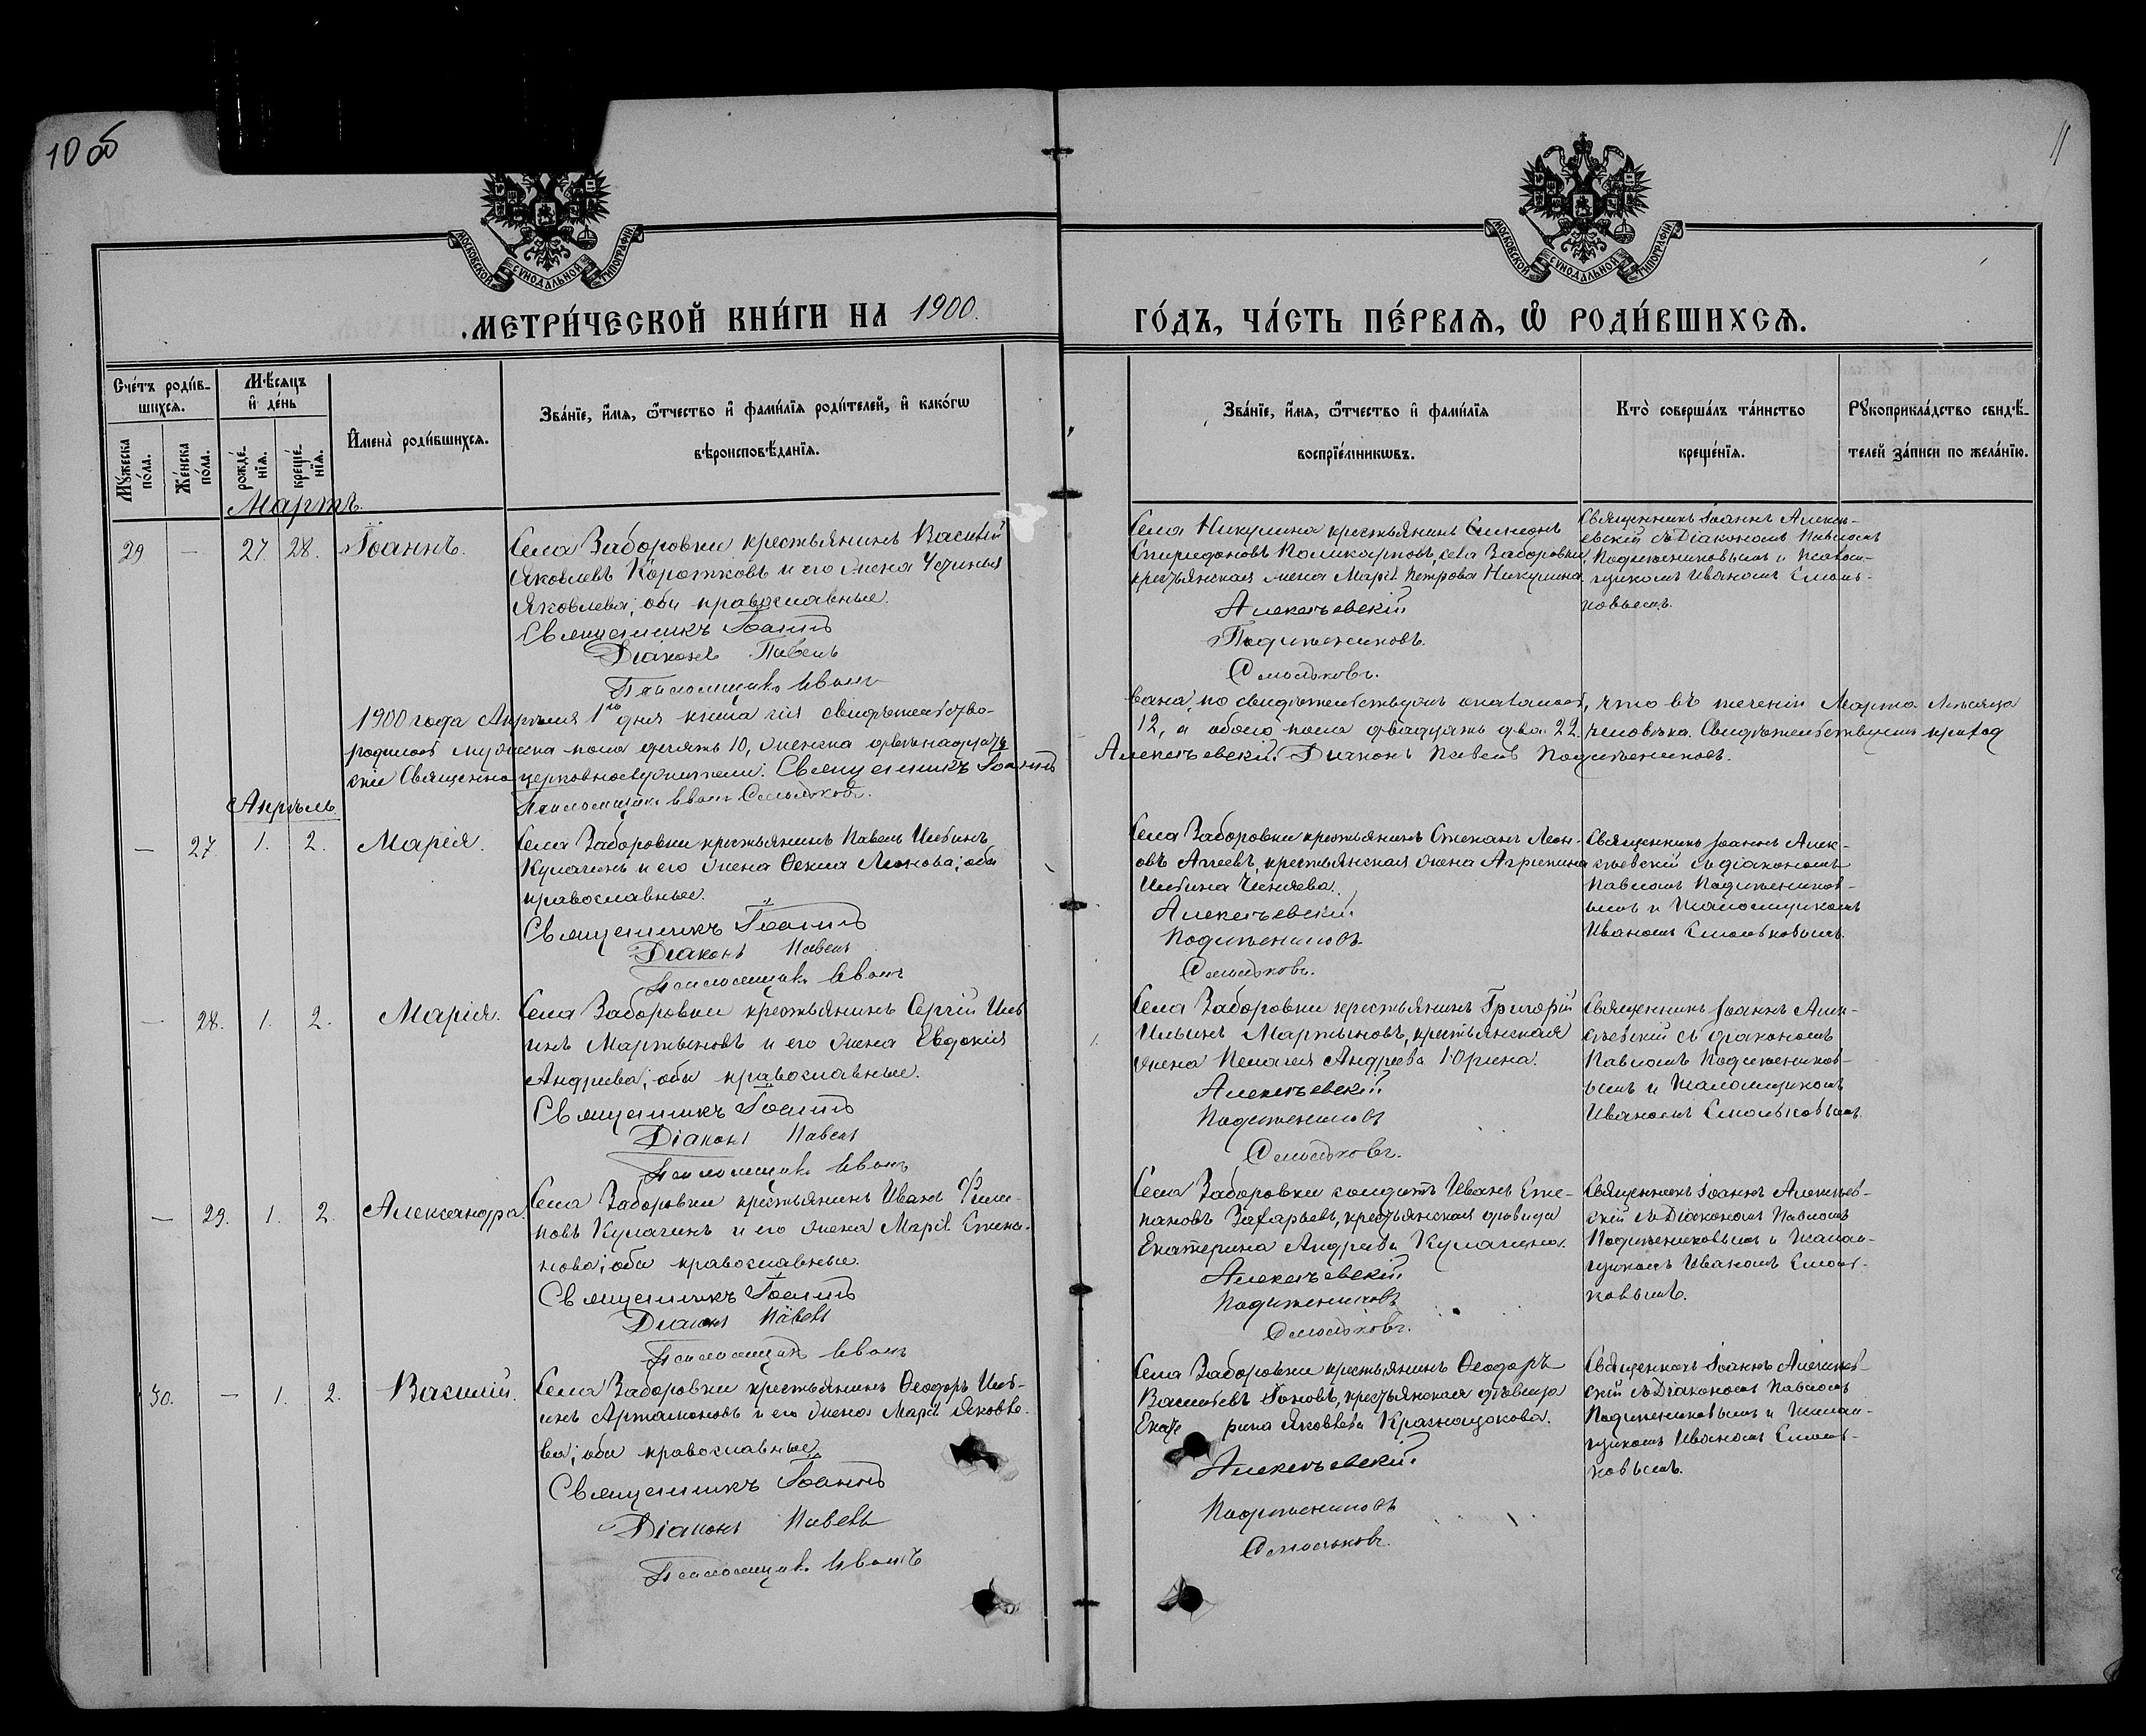 10 об
11
МОСКОВСКОЙ СѴНОДАЛЬНОЙ ТИПОГРАФІИ
МОСКОВСКОЙ СѴНОДАЛЬНОЙ ТИПОГРАФІИ
МЕТРИ́ЧЕСКОЙ КНИ́ГИ НА 1900.
ГО́ДЪ, ЧА́СТЬ ПЕ́РВАЯ, Ѡ РОДИ́ВШИХСЯ.
Сче́тъ роди́в-
шихся.
Мѣ́сяцъ
и де́нь
Му́жеска по́ла.
Же́нска по́ла.
рожде́-
нїя.
креще́-
нїя.
Имена̀ роди́вшихся.
Зва́нїе, и́мя, ѻ́тчество и фами́лїя роди́телей, и како́гѡ
вѣроисповѣ́данїя.
Зва́нїе, и́мя, ѻ́тчество и фами́лїя
воспрїе́мникѡвъ.
Кто̀ соверша́лъ та́инство
креще́нїя.
Рукоприкла́дство свидѣ́-
телей за́писи по жела́нїю.
Мартъ.
29 — 27 28. Іоаннъ.
Села Заборовки крестьянинъ Василій
Яковлевъ Коротковъ и его жена
Яковлева; оба православные.
Священникъ Іоаннъ
Діаконъ Павелъ
Псаломщикъ Иванъ
Села Никулина крестьянинъ Симеонъ
Спиридоновъ Поликарповъ, села Заборовки
крестьянская жена Марія Петрова Никулина.
Алексѣевскій.
Подтяжниковъ.
Смольковъ.
Священникъ Іоаннъ Алексѣ-
евскій съ Діакономъ Павломъ
и Псалом-
щикомъ Иваномъ Смоль-
ковымъ.
1900 года Апрѣля 1го дня книга сія свидѣтельство-
вана, по свидѣтельству оказалось, что въ теченіи Марта мѣсяца
родилось мужеска пола десять 10, женска двѣнадцать
12, а обоего пола двадцать два 22 человѣка. Свидѣтельствуемъ приход
скіе Священно церковнослужители: Священникъ Іоаннъ
Алексѣевскій. Діаконъ Павелъ Подтяжниковъ.
Псаломщикъ Иванъ Смольковъ.
Апрѣль
— 27 1. 2. Марія.
Села Заборовки крестьянинъ Павелъ Ильинъ
Кулагинъ и его жена Ѳекла Леонова; оба
православные.
Священникъ Іоаннъ
Діаконъ Павелъ
Псаломщикъ Иванъ
Села Заборовки крестьянинъ Степанъ Леон-
овъ Агѣевъ, крестьянская жена Агрипина
Ильина
Алексѣевскій.
Подтяжниковъ
Смольковъ.
Священникъ Іоаннъ Алек-
сѣевскій съ діакономъ
Павломъ Подтяжников-
ымъ и Псаломщикомъ
Иваномъ Смольковымъ.
— 28. 1. 2. Марія.
Села Заборовки крестьянинъ Сергій Иль
инъ Мартыновъ и его жена Евдокія
Андреева; оба православные.
Священникъ Іоаннъ
Діаконъ Павелъ
Псаломщикъ Иванъ
Села Заборовки крестьянинъ Григорій
Ильинъ Мартыновъ, крестьянская
жена Пелагея Андреева Юрина.
Алексѣевскій
Подтяжниковъ
Смольковъ.
Священникъ Іоаннъ Алек-
сѣевскій съ діакономъ
Павломъ Подтяжников-
ымъ и Псаломщикомъ
Иваномъ Смольковымъ.
— 29. 1. 2. Александра.
Села Заборовки крестьянинъ Иванъ Фили-
повъ Кулагинъ и его жена Марія Степа-
нова; оба православные.
Священникъ Іоаннъ
Діаконъ Павелъ
Псаломщикъ Иванъ
Села Заборовки солдатъ Иванъ Сте-
пановъ Захарьевъ, крестьянская дѣвица
Екатерина Андреева Кулагина.
Алексѣевскій.
Подтяжниковъ
Смольковъ.
Священникъ Іоаннъ Алексѣев-
скій съ Діакономъ Павломъ
Подтяжниковымъ и Псалом-
щикомъ Иваномъ Смоль-
ковымъ.
30. — 1. 2. Василій.
Села Заборовки крестьянинъ Ѳеодоръ Иль-
инъ Артамоновъ и его жена Марія Яковле-
ва; оба православные
Священникъ Іоаннъ
Діаконъ Павелъ
Псаломщикъ Иванъ
Села Заборовки крестьянинъ Ѳеодоръ
Васильевъ крестьянская дѣвица
Екате рина Яковлева Краснощокова.
Алексѣевскій.
Подтяжниковъ
Смольковъ.
Священникъ Іоаннъ Алексѣев-
скій съ Діакономъ Павломъ
Подтяжниковымъ и Псалом-
щикомъ Иваномъ Смоль-
ковымъ.